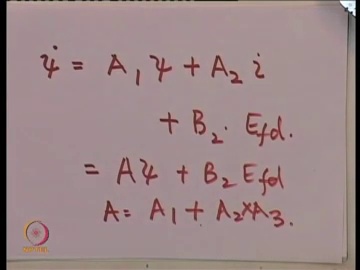 ψ̇ = A₁ ψ + A₂ i
+ B₂. E_fd.
= Aψ + B₂ E_fd
A = A₁ + A₂×A₃.
NPTEL